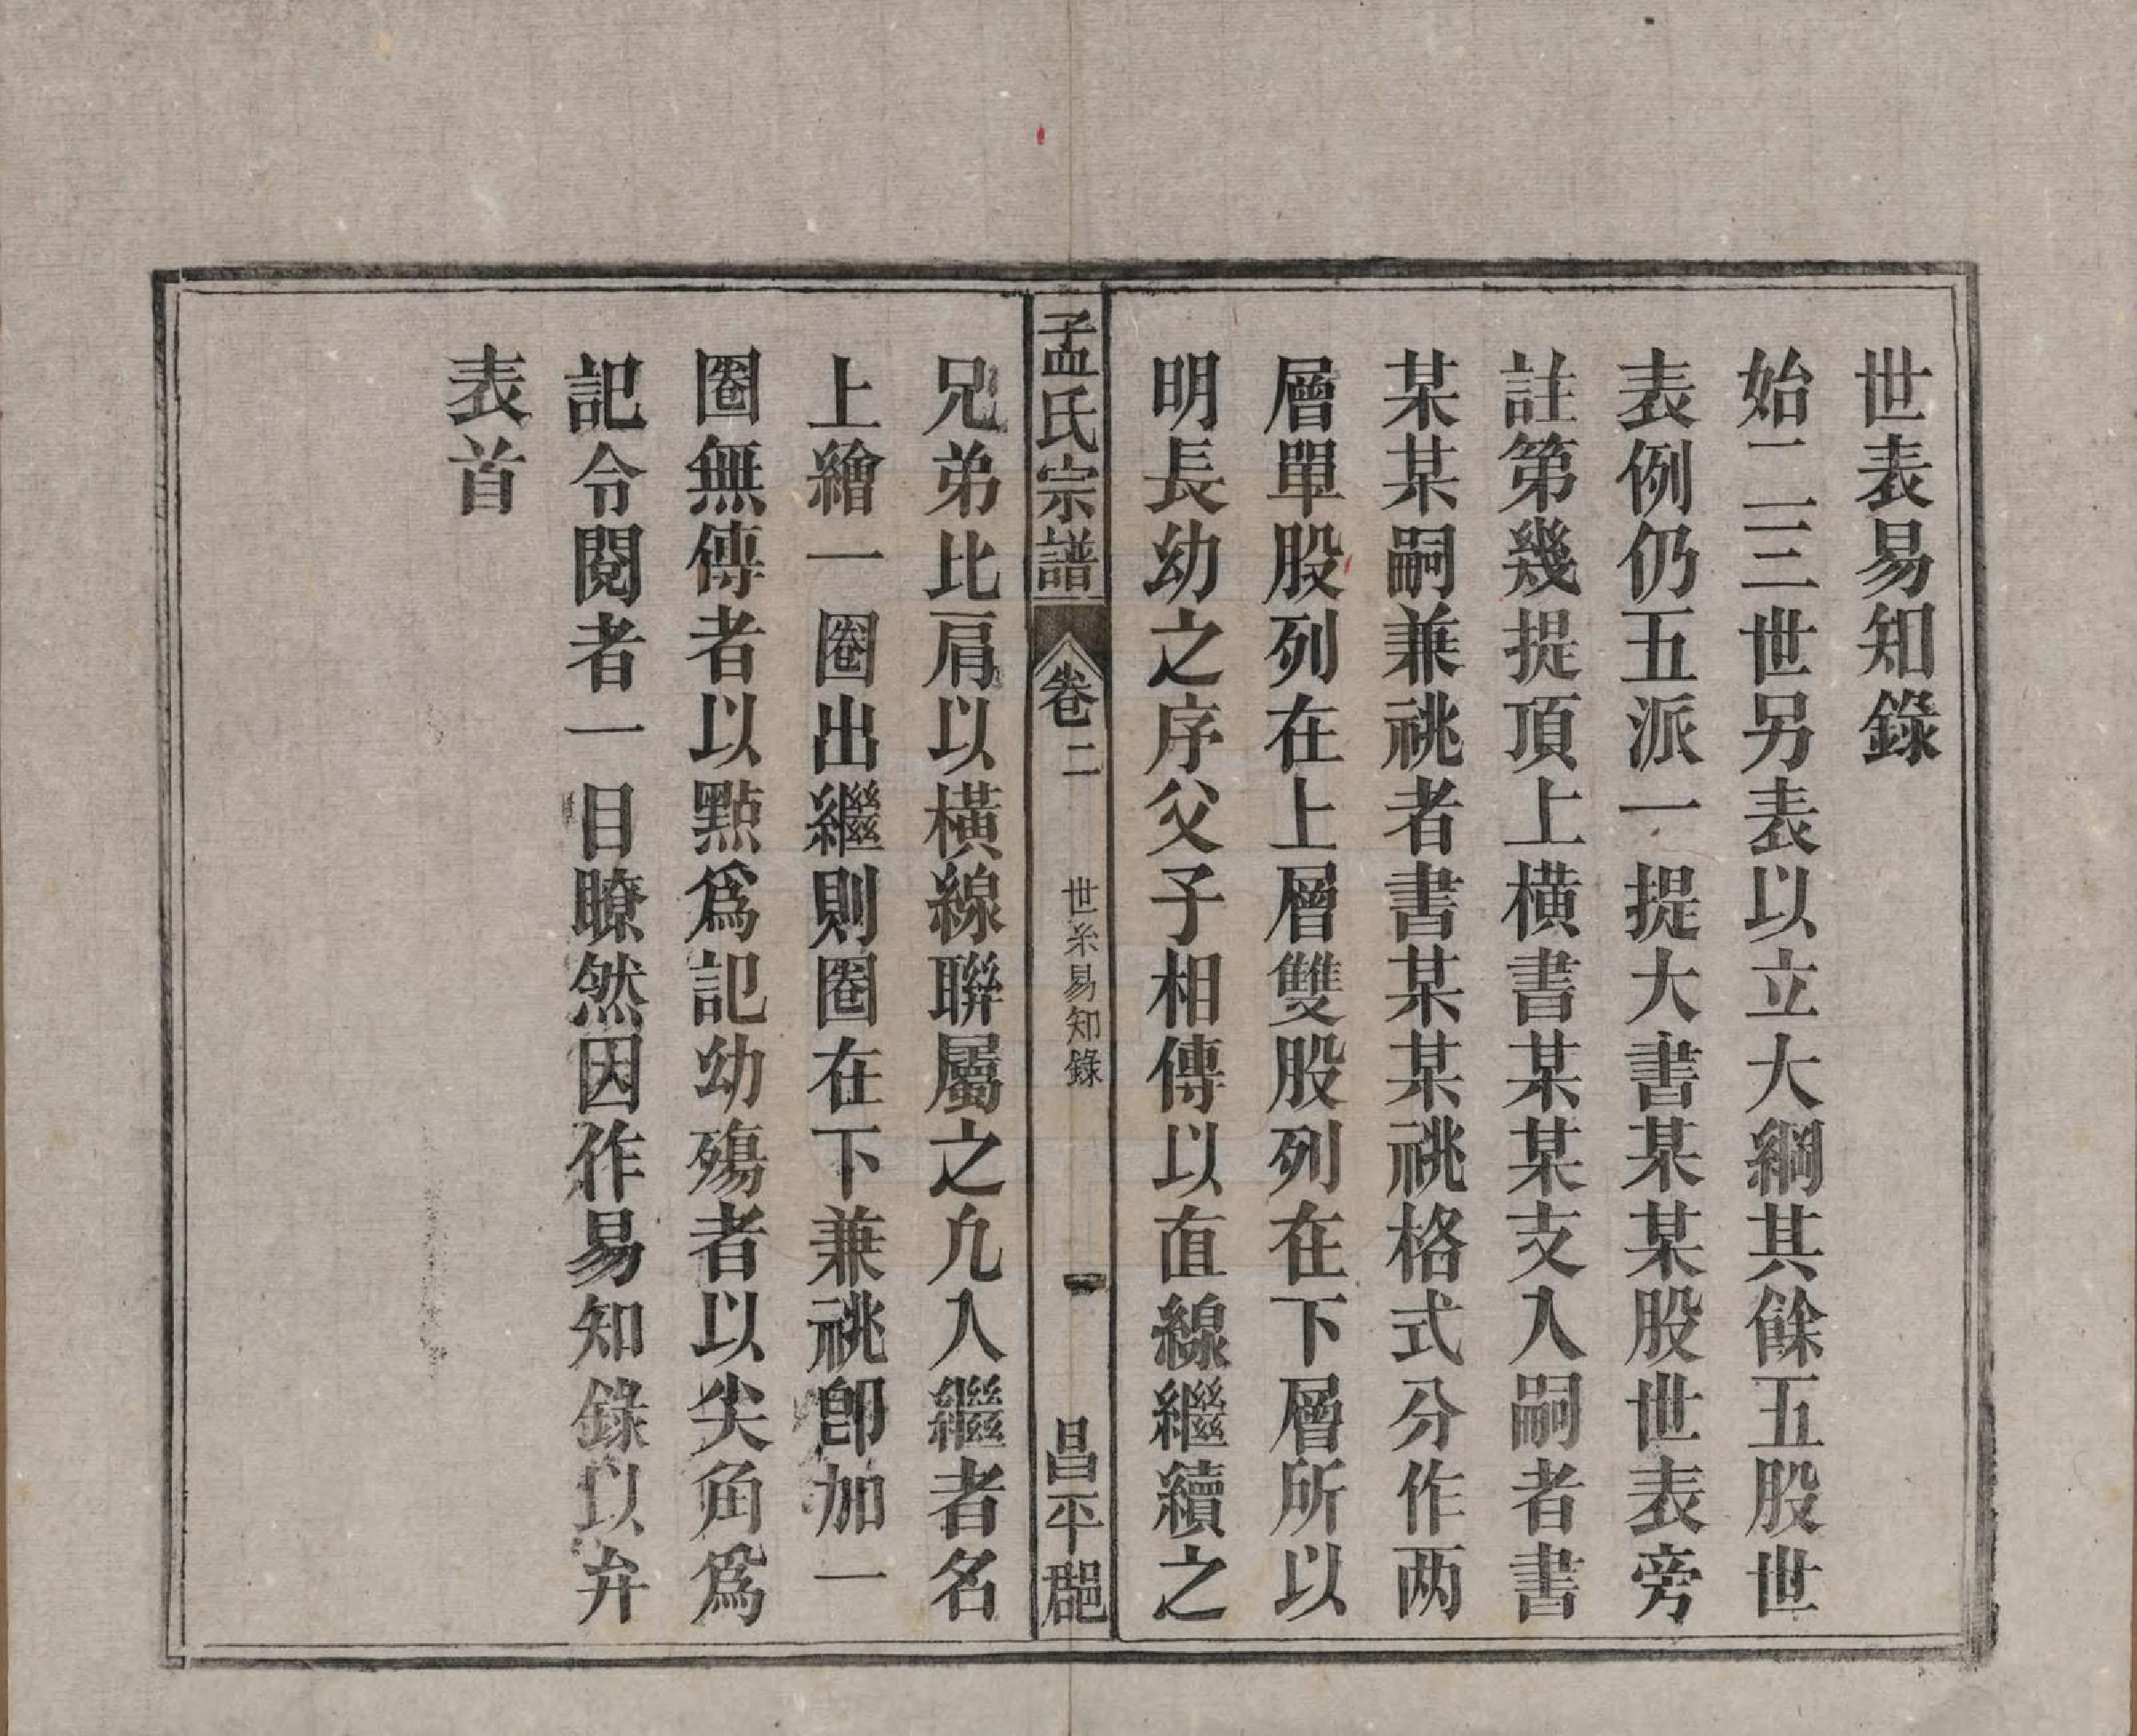 世表易知錄
始一二三世另表以立大綱其餘五股世
表例仍五派一提大書某某股世表旁
註第幾提頂上橫書某某支入嗣者書
某某嗣兼祧者書某某祧格式分作两
層單股列在上層雙股列在下層所以
明長幼之序父子相傳以直線繼續之
孟氏宗譜
卷二
世系易知錄
一
昌平郡
兄弟比肩以橫線聯屬之凢入繼者名
上繪一圈出繼則圈在下兼祧卽加一
圈無傳者以點爲記幼殤者以尖角爲
記令閱者一目瞭然因作易知錄以弁
表首